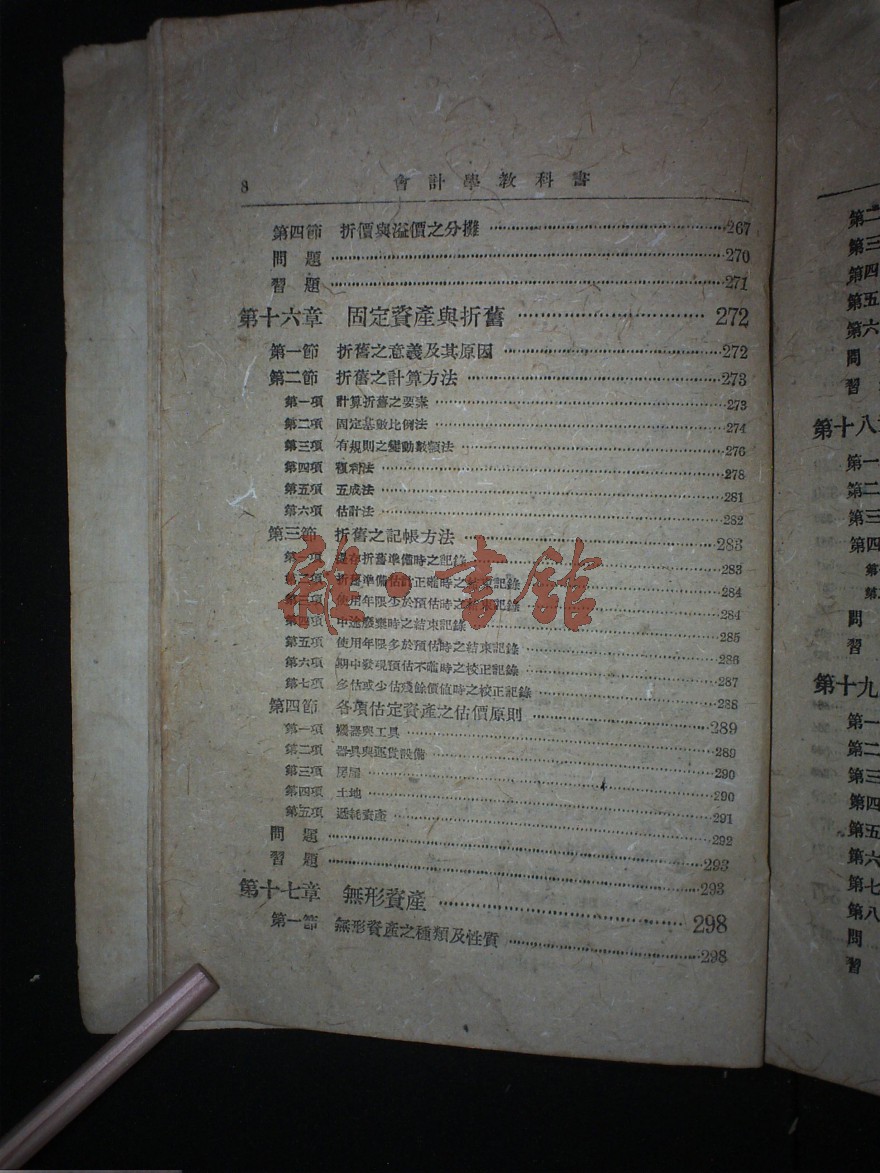 8 會計學教科書
第四節 折價與溢價之分攤 267
問題 270
習題 271
第十六章 固定資產與折舊 272
第一節 折舊之意義及其原因 272
第二節 折舊之計算方法 273
第一項 計算折舊之要素 273
第二項 固定基數比例法 274
第三項 有規則之變動數額法 276
第四項 複利法 278
第五項 五成法 281
第六項 估計法 282
第三節 折舊之記帳方法 283
第一項 提存折舊準備時之記錄 283
第二項 折舊準備估計正確時之結束記錄 284
第三項 使用年限少於預估時之結束記錄 284
第四項 中途廢棄時之結束記錄 285
第五項 使用年限多於預估時之結束記錄 286
第六項 期中發現預估不確時之校正記錄 287
第七項 多估或少估殘餘價值時之校正記錄 288
第四節 各項估定資產之估價原則 289
第一項 機器與工具 289
第二項 器具與運貨設備 290
第三項 房屋 290
第四項 土地 291
第五項 遞耗資產 292
問題 293
習題 293
第十七章 無形資產 298
第一節 無形資產之種類及性質 298
雜·書館
第二
第三
第四
第五
第六
問
習
第十八章
第一
第二
第三
第四
第一
第二
問
習
第十九
第一
第二
第三
第四
第五
第六
第七
第八
問
習